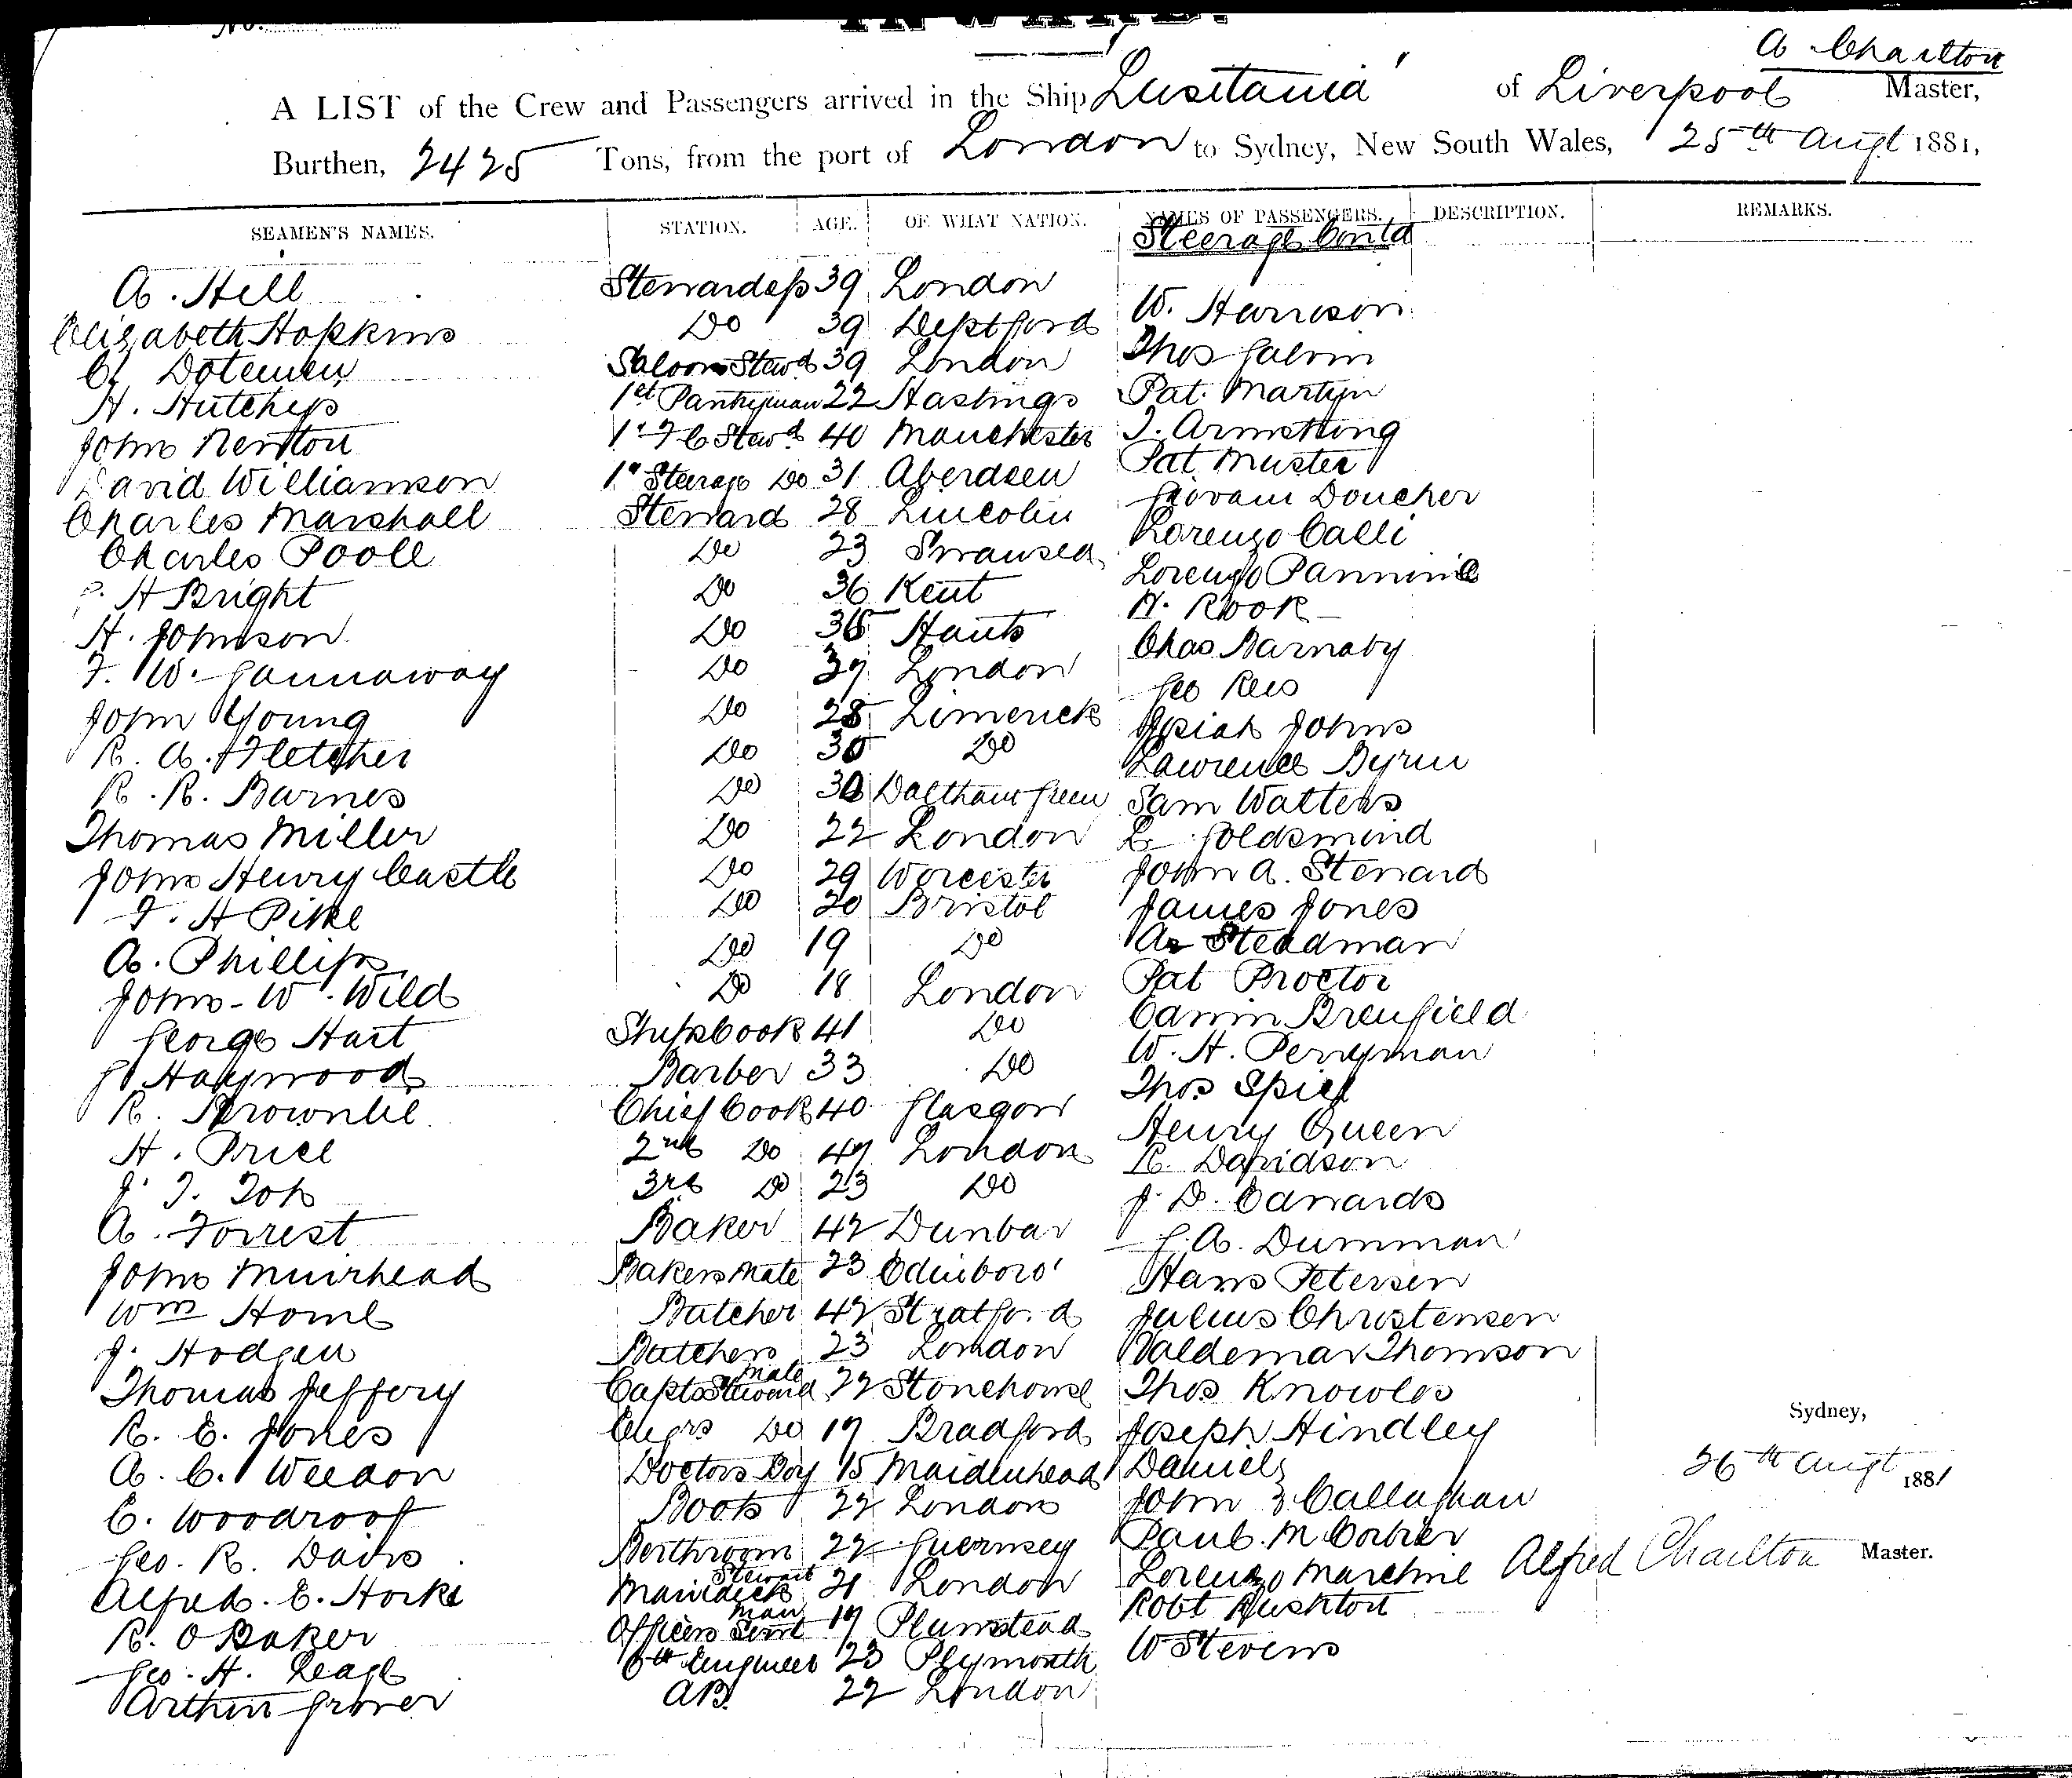 No.
INWARD.
A Charlton
A LIST of the Crew and Passengers arrived in the Ship Lusitania of Liverpool Master,
Burthen, 2425 Tons, from the port of London to Sydney, New South Wales, 25th Augt 1881,
SEAMEN'S NAMES. STATION. AGE. OF WHAT NATION. NAMES OF PASSENGERS. DESCRIPTION. REMARKS.
Steerage Contd
A. Hill Stewardess 39 London
W. Harrison
Elizabeth Hopkins Do 39 Deptford
Thos Galvin
Saloon Stewd 39 London
Pat. Martyn
H. Hutchys 1st Pantryman 22 Hastings
J. Armstrong
John Newton 1st 2 C Stewd 40 Manchester
Pat Muster
David Williamson 1st Steerage Do 31 Aberdeen
Giovani Doucher
Charles Marshall Steward 28 Lincoln
Lorenzo Calli
Charles Poole Do 23 Swansea
Lorenzo Pannine
H Bright Do 36 Kent
H. Rook
H. Johnson Do Hants
Chas Barnaby
F. W. Gannaway Do London
Geo Rees
John Young Do 28 Limerick
Isiah Johns
R. A. Fletcher Do Do
Lawrence Byrne
R. R. Barnes Do Green
Sam Watters
Thomas Miller Do 22 London
L Goldsmind
John Henry Castle Do 29 Worcester
John A. Steward
F. H Pike Do 20 Bristol
James Jones
A. Phillips Do 19 Do
A Steadman
John W. Wild Do 18 London
Pat Proctor
George Hart Ships Cook 41 Do
Edwin Brenfield
G Haywood Barber 33 Do
W. H. Perryman
R. Brownlie Chief Cook 40 Glasgow
Thos
H. Price 2nd Do 47 London
Henry Queen
J. J. 3rd Do 23 Do
R. Davidson
A. Forrest Baker 42 Dunbar
J. D. Edwards
John Muirhead Bakers Mate 23 Edinboro'
G. A. Dumman
Wm Home Butcher 42 Stratford
Hans Petersen
J. Hodgen Butchers Mate 23 London
Julius Christensen
Thomas Jeffery Capts Steward 22 Stonehouse
Valdemar Thomson
R. E. Jones Engrs Do 17 Bradford
Thos Knowles
A. C. Weedon Doctors Boy 15 Maidenhead
Joseph Hindley
E. Woodroof Boots 22 London
Daniels
Geo. R. Davis Berthroom Stewart 22 Guernsey
John Callaghan
Alfred. E. Horke Maindeck man 21 London
Paul. M
R. O Baker Officers Servt 17 Plumstead
Lorenzo Marchine
Geo. H. Leage 6th Engineer 23 Plymouth
Robt Rushton
Arthur Grover AB. 22 London
W Stevens
Sydney,
26th Augt 1881
Alfred Charlton Master.